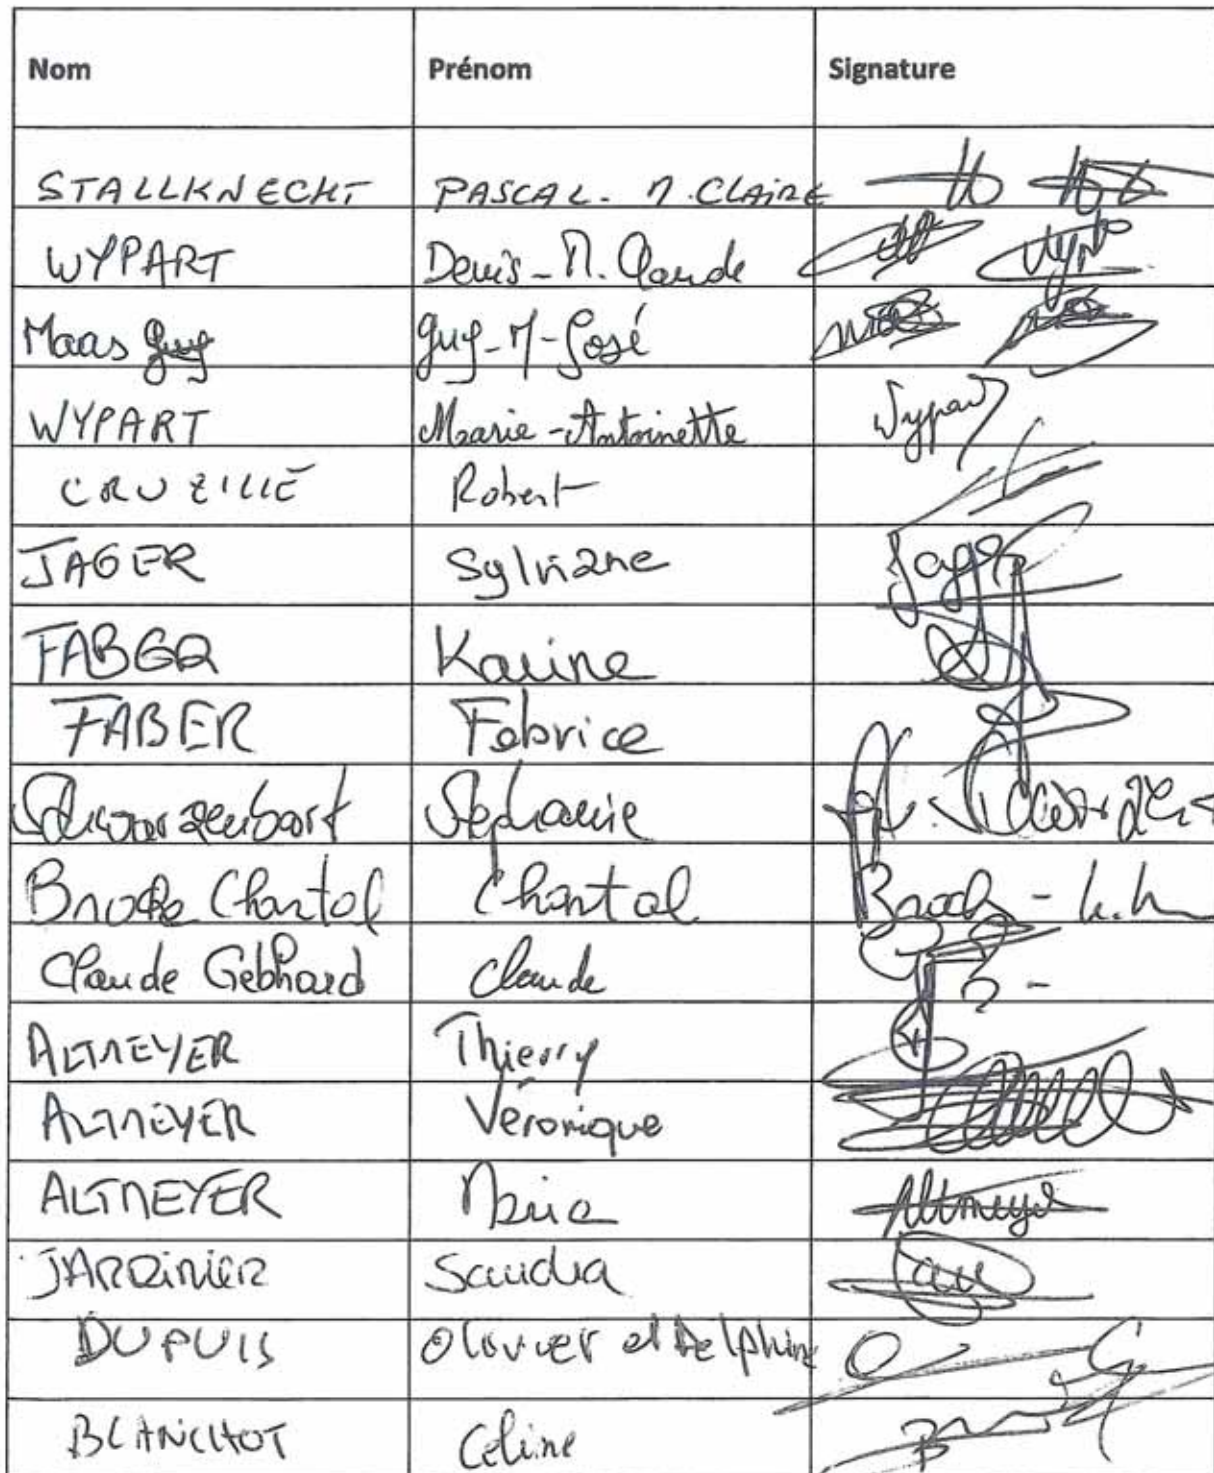 Nom Prénom Signature
STALLKNECHT PASCAL - M. CLAIRE
WYPART Denis - M. Claude
Maas Guy Guy - M - José
WYPART Marie-Antoinette Wypart
CRUZILLE Robert
JAGER Sylviane Jager
FABER Karine
FABER Fabrice
Schwarzenbart Stéphanie
Chantal Chantal
Claude Gebhard Claude
ALTMEYER Thierry
ALTMEYER Véronique
ALTMEYER Marie Altmeyer
JARDINIER Sandra
DUPUIS Olivier et Delphine
BLANCHOT Céline